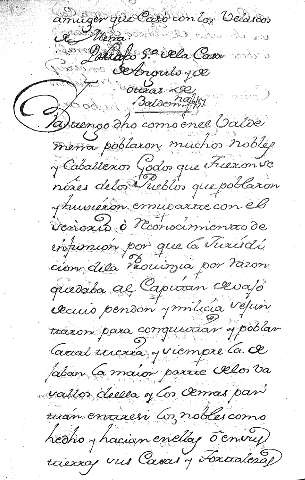 a muger que Caso con los Velascos
de Mena
Solar de la Casa
de Angulo y de
otras de
Ya tengo dho como en el Valde
mena poblaron muchos nobles
y Caballeros Godos que fueron se
ñores delos Pueblos que poblaron
y tuvieron en su parte con el
señorio o Reconocimiento de
infursion por que la Jurisdi
cion dela Provinzia por razon
quedaba al Capitan de vajo
de cuio pendon y milicia se jun
taron para conquistar y poblar
la tal tierra y siempre la de
jaban la maior parte delos va
sallos de ella y los demas par
tian entre si los nobles como
hecho y hacian en ellas o en sus
tierras sus Casas y Fortalezas